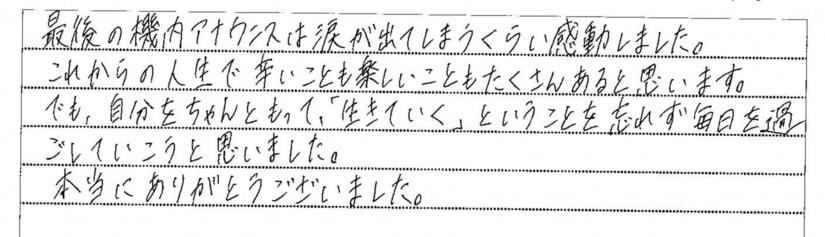 最後の機内アナウンスは涙が出てしまうくらい感動しました。
これからの人生で辛いことも楽しいこともたくさんあると思います。
でも、自分をちゃんともって、「生きていく」ということを忘れず毎日を過
ごしていこうと思いました。
本当にありがとうございました。